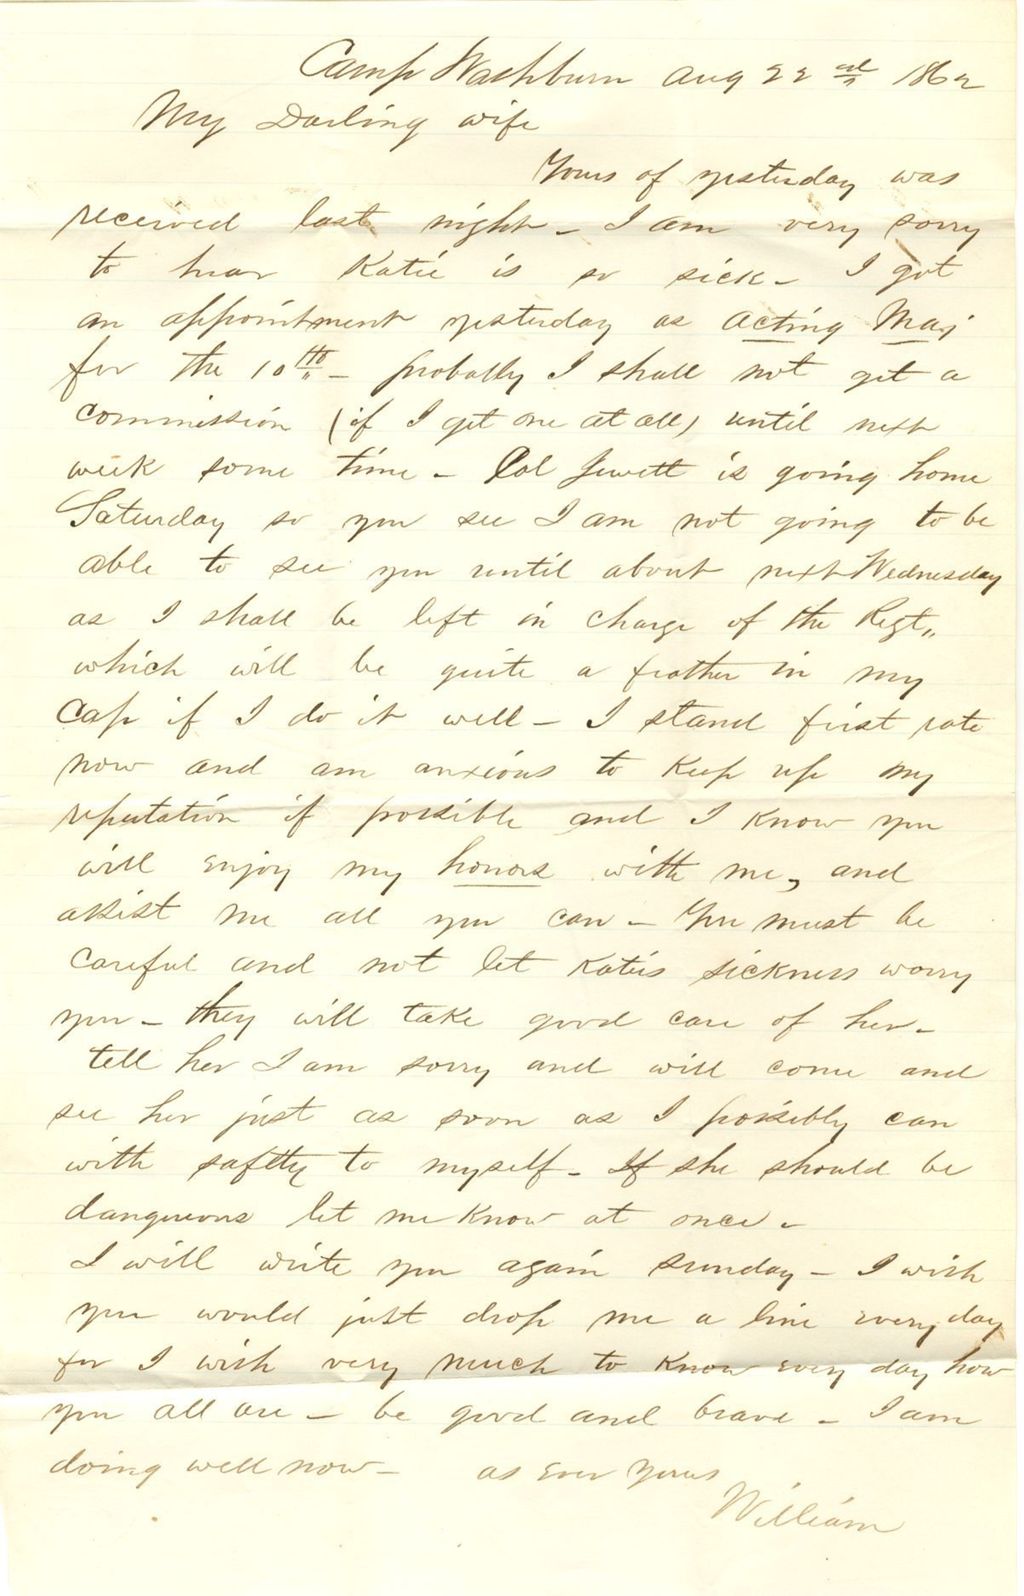 Camp Washburn Aug 22nd 1862
My Darling wife
Yours of yesterday was
received last night - I am very sorry
to hear Katie is so sick - I got
an appointment yesterday as acting Maj
for the 10th - probably I shall not get a
commission (if I get one at all) until next
week some time - Col Jewett is going home
Saturday so you see I am not going to be
able to see you until about next Wednesday
as I shall be left in charge of the Regt,,
which will be quite a feather in my
cap if I do it well - I stand first rate
now and am anxious to keep up my
reputation if possible and I know you
will enjoy my honors with me, and
assist me all you can - You must be
careful and not let Katies sickness worry
you - they will take good care of her -
tell her I am sorry and will come and
see her just as soon as I possibly can
with safety to myself - If she should be
dangerous let me know at once -
I will write you again Sunday - I wish
you would just drop me a line every day
for I wish very much to know every day how
you all are - be good and brave - I am
doing well now - as ever yours
William